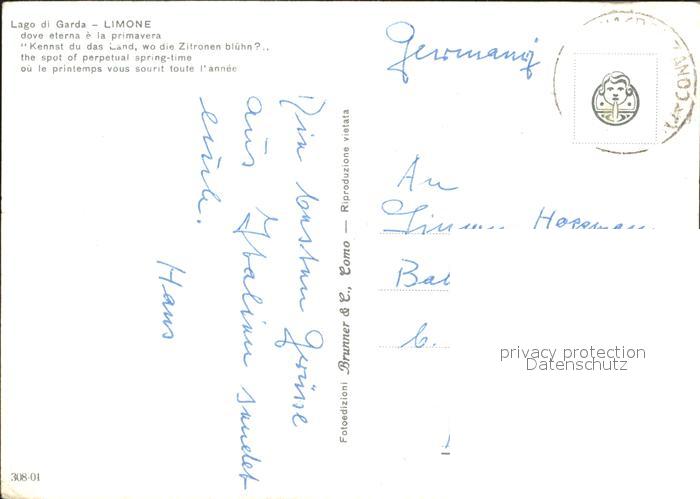 Lago di Garda – LIMONE
dove eterna è la primavera
"Kennst du das Land, wo die Zitronen blühn?..
the spot of perpetual spring-time
où le printemps vous sourit toute l'année
Germany
Die besten Grüsse
aus Italien sendet
euch.
Hans
Fotoedizioni Brunner & C., Como — Riproduzione vietata
An
privacy protection
Datenschutz
308-01